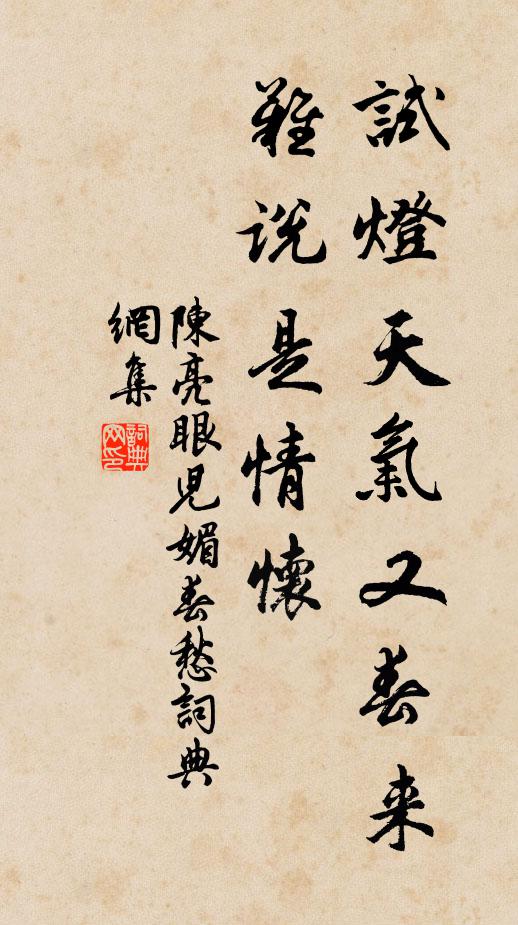 試燈天氣又春来
難說是情懷
陳亮眼児媚春愁詞典
網集
詞典網印